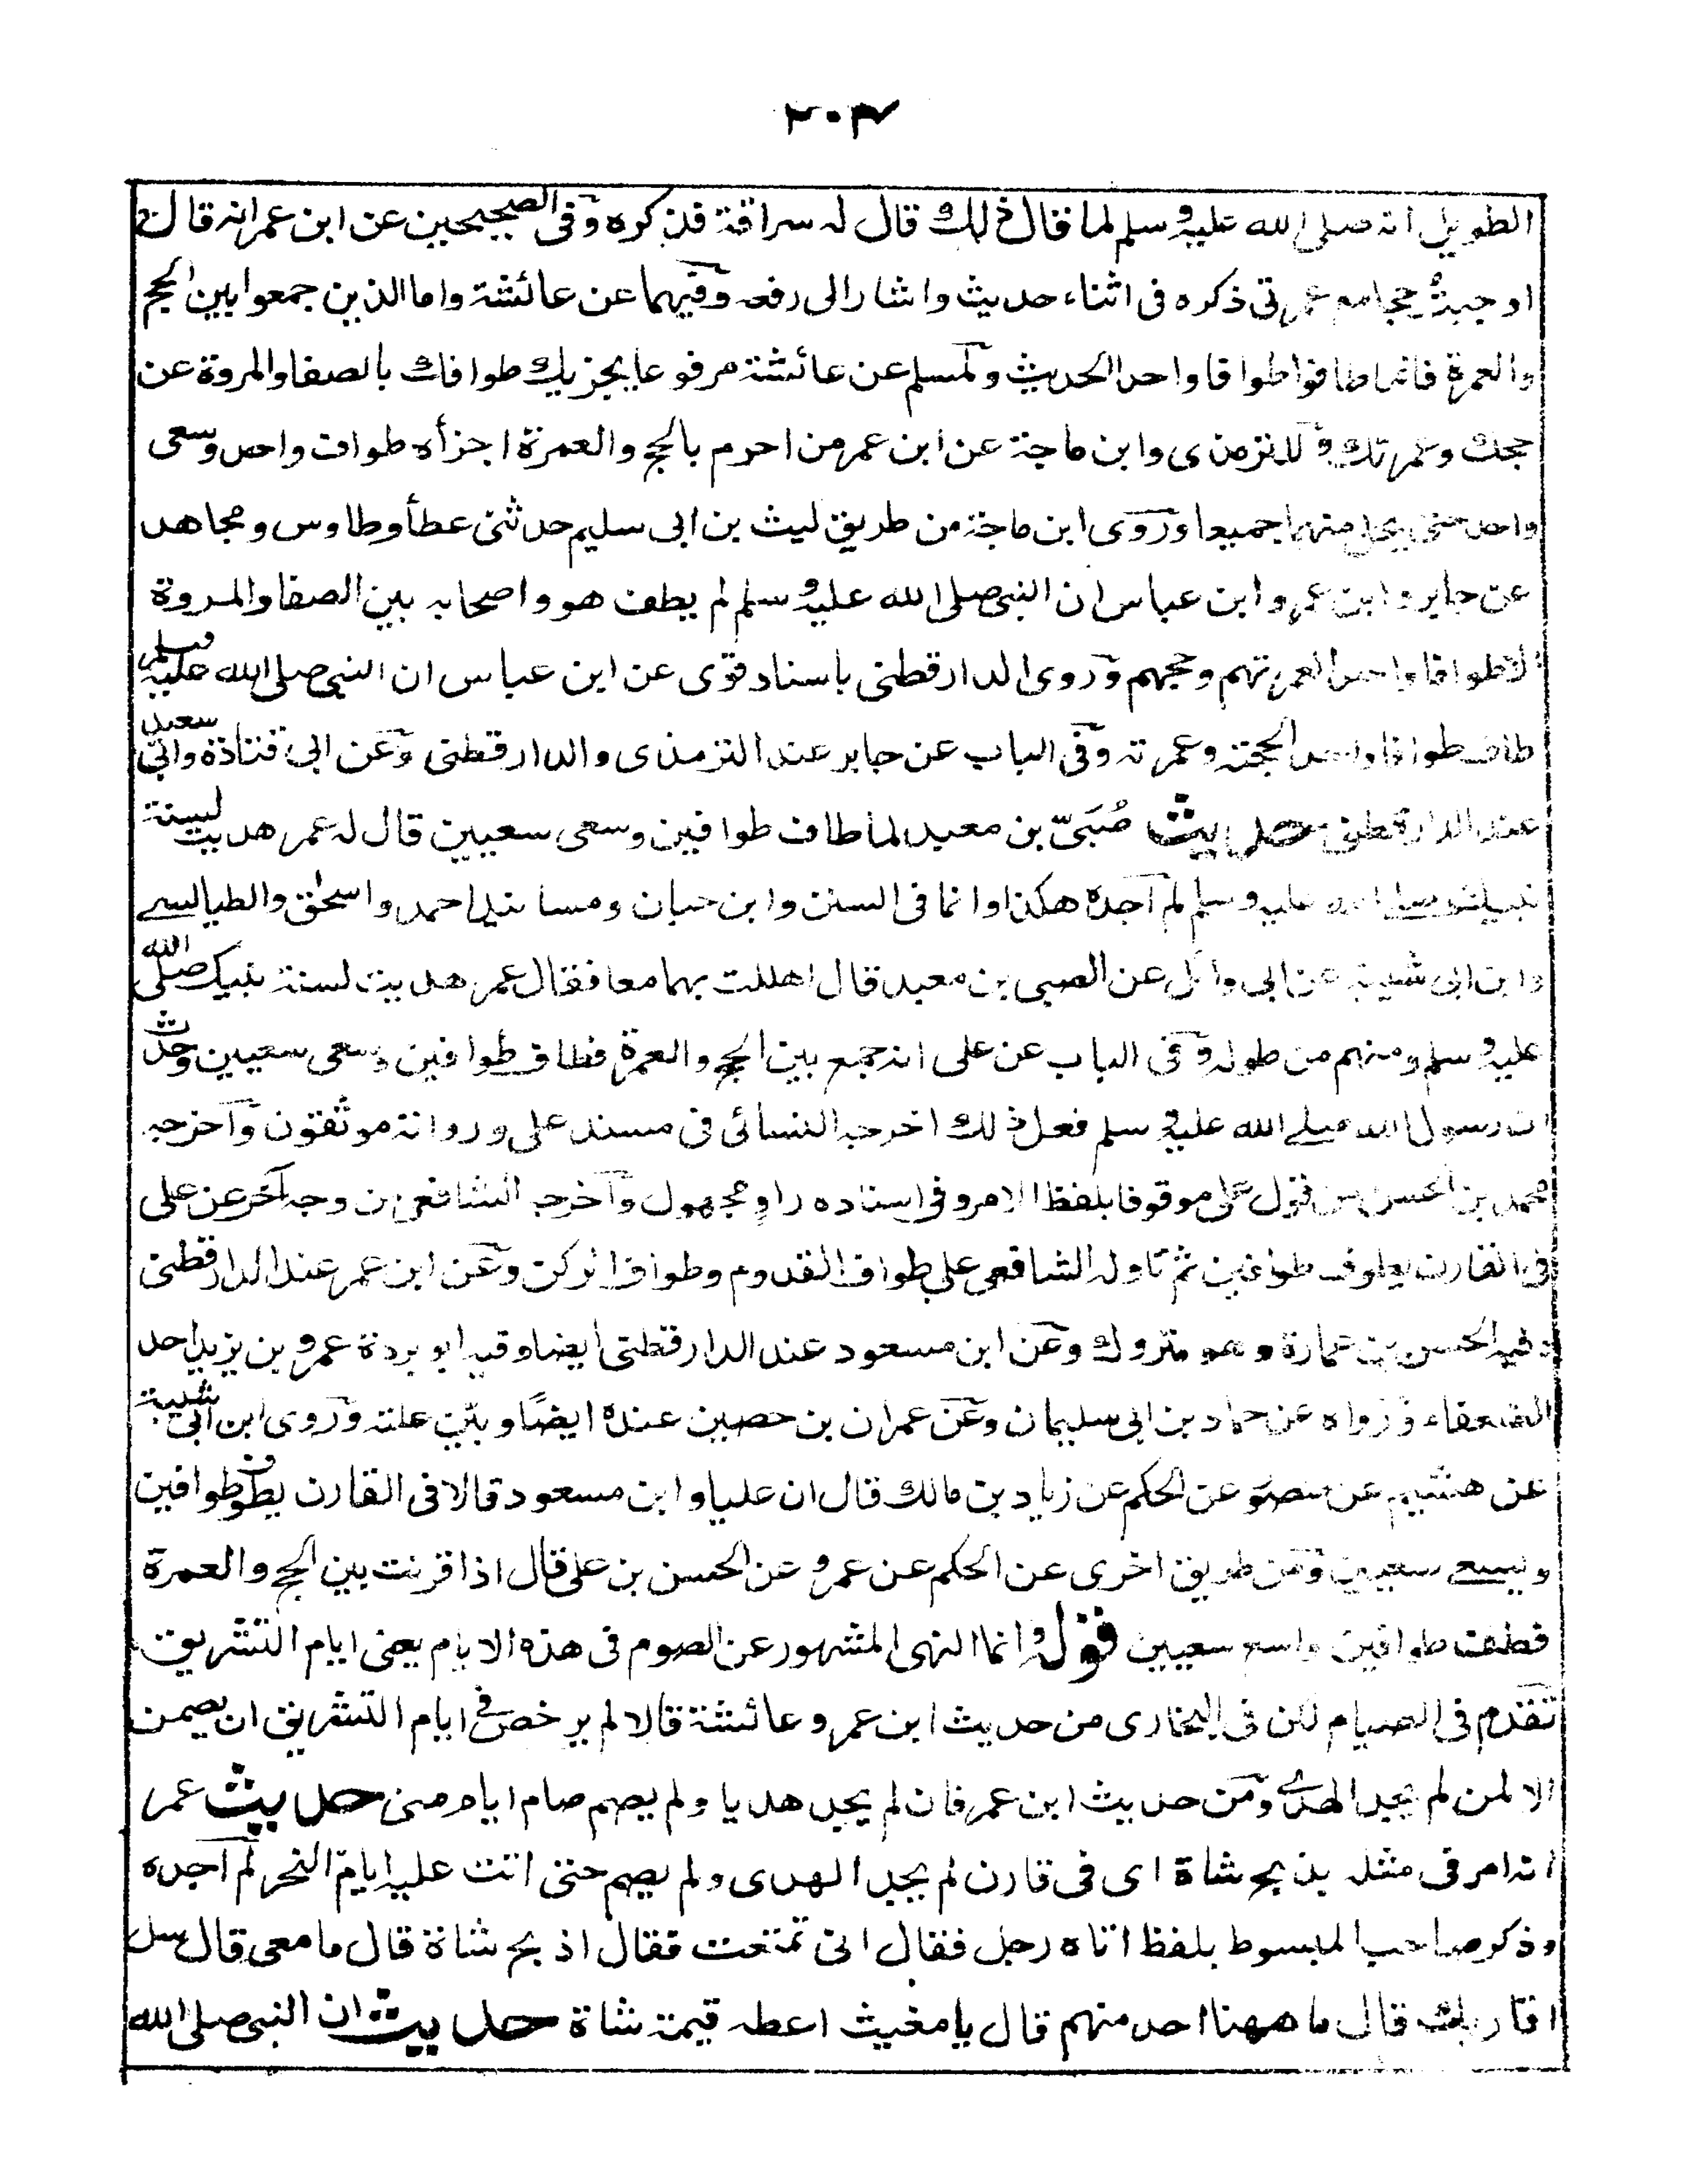 ٢٠٣
الطويل انه صلى الله عليه وسلم لما قال ذلك قال له سراقة فذكره وفى الصحيحين عن ابن عمر انه قال
اوجبت حجا مع عمرتى ذكره فى اثناء حديث واشار الى رفعه وفيهما عن عائشة واما الذين جمعوا بين الحج
والعمرة فانما طافوا طوافا واحدا الحديث ولمسلم عن عائشة مرفوعا يجزيك طوافك بالصفا والمروة عن
حجك وعمرتك وللترمذى وابن ماجة عن ابن عمر من احرم بالحج والعمرة اجزأه طواف واحد وسعى
واحد حتى يحل منهما جميعا وروى ابن ماجة من طريق ليث بن ابى سليم حدثنى عطأ وطاوس ومجاهد
عن جابر وابن عمر وابن عباس ان النبى صلى الله عليه وسلم لم يطف هو واصحابه بين الصفا والمروة
الا طوافا واحدا لعمرتهم وحجهم وروى الدارقطنى باسناد قوى عن ابن عباس ان النبى صلى الله عليه وسلم
طاف طوافا واحدا لحجته وعمرته وفى الباب عن جابر عند الترمذى والدارقطنى وعن ابى قتادة وابى سعيد
عند الدارقطنى حديث صُبَىّ بن معبد لما طاف طوافين وسعى سعيين قال له عمر هديت لسنة
نبيك صلى الله عليه وسلم لم اجده هكذا وانما فى السنن وابن حبان ومسانيد احمد واسحق والطيالسے
وابن ابى شيبة عن ابى وائل عن الصبى بن معبد قال اهللت بهما معا فقال عمر هديت لسنة نبيك صلى الله
عليه وسلم ومنهم من طوله وفى الباب عن على انه جمع بين الحج والعمرة فطاف طوافين وسعى سعيين وحدث
ان رسول الله صلے الله عليه وسلم فعل ذلك اخرجه النسائى فى مسند على ورواته موثقون واخرجه
محمد بن الحسن من قول على موقوفا بلفظ الامر وفى اسناده راوٍ مجهول واخرجه الشافعى من وجه آخر عن على
فى القارن يطوف طوافين ثم تاوله الشافعى على طواف القدوم وطواف الركن وعن ابن عمر عند الدارقطنى
وفيه الحسن بن عمارة وهو متروك وعن ابن مسعود عند الدارقطنى ايضا وفيه ابو بردة عمرو بن يزيد احد
الضعفاء ورواه عن حماد بن ابى سليمان وعن عمران بن حصين عنده ايضًا وبيّن علته وروى ابن ابى شيبة
عن هشيم عن منصور عن الحكم عن زياد بن مالك قال ان عليا وابن مسعود قالا فى القارن يطوف طوافين
ويسعے سعيين ومن طريق اخرى عن الحكم عن عمرو عن الحسن بن على قال اذا قرنت بين الحج والعمرة
فطف طوافين واسع سعيين قوله وانما النهى المشهور عن الصوم فى هذه الايام يعنى ايام التشريق
تقدم فى الصيام لكن فى البخارى من حديث ابن عمر وعائشة قالا لم يرخص فى ايام التشريق ان يصمن
الا لمن لم يجد الهدے ومن حديث ابن عمر فان لم يجد هديا ولم يصم صام ايام منى حديث عمر
انه امر فى مثله بذبح شاة اى فى قارن لم يجد الهدى ولم يصم حتى اتت عليه ايام النحر لم اجده
وذكر صاحب المبسوط بلفظ اتاه رجل فقال انى تمتعت فقال اذبح شاة قال ما معى قال سل
اقاربك قال ما ههنا احد منهم قال يا مغيث اعطه قيمة شاة حديث ان النبى صلى الله